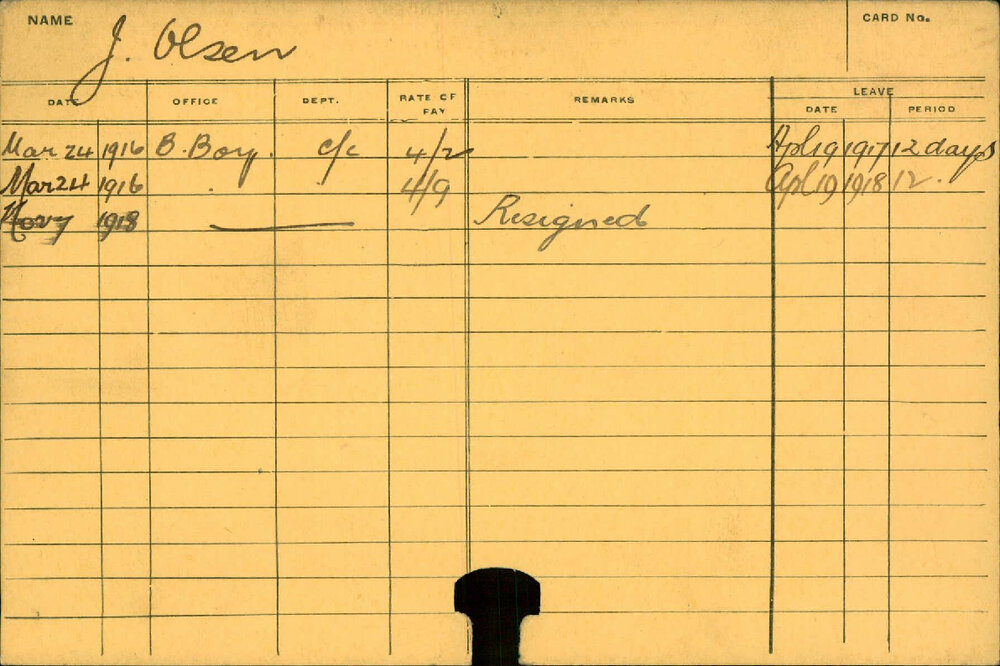 NAME J. Olsen CARD No.
DATE OFFICE DEPT. RATE OF PAY REMARKS LEAVE
DATE PERIOD
Mar 24 1916 B. Boy. c/c 4/2 Apl 19 1917 12 days
Mar 24 1916 . . 4/9 Apl 19 1918 12.
1918 Resigned